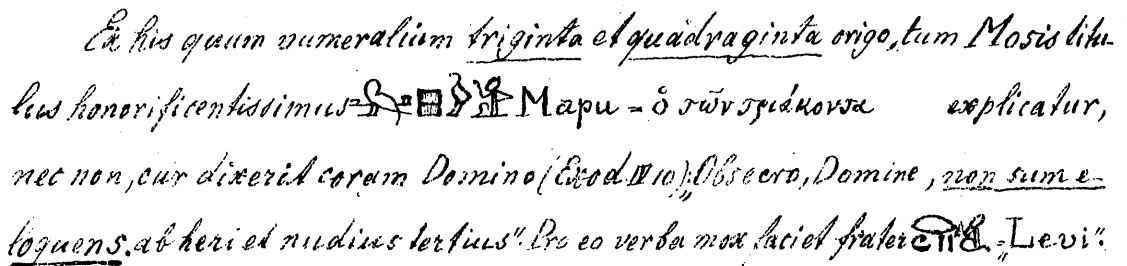 Ex his quum numeralium triginta et quadraginta origo, tum Mosis titu-
lus honorificentissimus= Mapu = ὁ τῶν τριάκοντα explicatur,
nec non, cur dixerit coram Domino (Exod IV 10): „Obsecro, Domine, non sum e-
loquens. ab heri et nudius tertius". Pro eo verba mox faciet frater = „Levi".